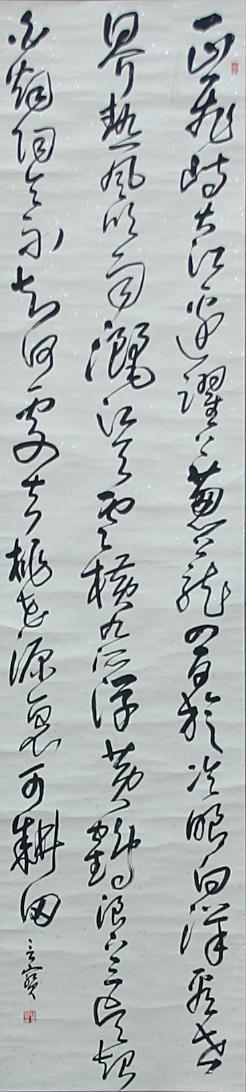 一山飛峙大江邊躍上葱蘢四百旋冷眼向洋看世
界熱風吹雨灑江天雲橫九派浮黃鶴浪下三吳起
白煙陶令不知何處去桃花源裏可耕田